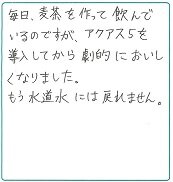 毎日、麦茶を作って飲んで
いるのですが、アクアス5を
導入してから劇的においし
くなりました。
もう水道水には戻れません。